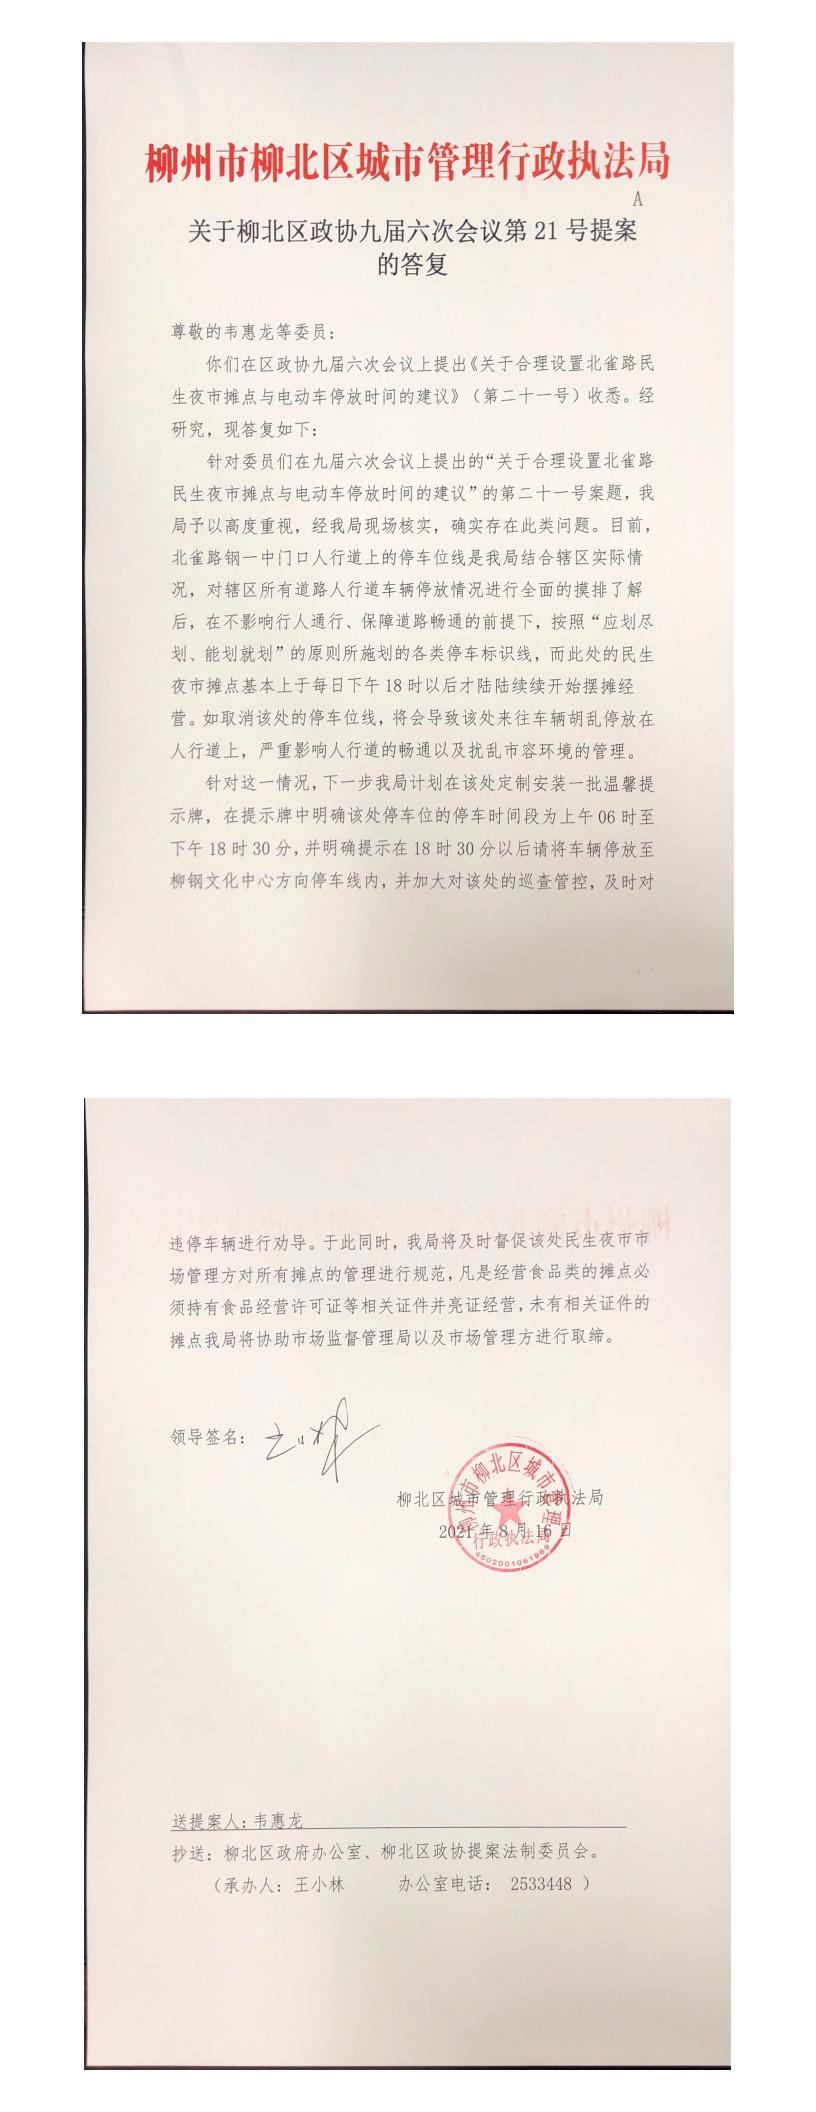 柳州市柳北区城市管理行政执法局
A
关于柳北区政协九届六次会议第 21 号提案
的答复
尊敬的韦惠龙等委员：
你们在区政协九届六次会议上提出《关于合理设置北雀路民
生夜市摊点与电动车停放时间的建议》（第二十一号）收悉。经
研究，现答复如下：
针对委员们在九届六次会议上提出的“关于合理设置北雀路
民生夜市摊点与电动车停放时间的建议”的第二十一号案题，我
局予以高度重视，经我局现场核实，确实存在此类问题。目前，
北雀路钢一中门口人行道上的停车位线是我局结合辖区实际情
况，对辖区所有道路人行道车辆停放情况进行全面的摸排了解
后，在不影响行人通行、保障道路畅通的前提下，按照“应划尽
划、能划就划”的原则所施划的各类停车标识线，而此处的民生
夜市摊点基本上于每日下午 18 时以后才陆陆续续开始摆摊经
营。如取消该处的停车位线，将会导致该处来往车辆胡乱停放在
人行道上，严重影响人行道的畅通以及扰乱市容环境的管理。
针对这一情况，下一步我局计划在该处定制安装一批温馨提
示牌，在提示牌中明确该处停车位的停车时间段为上午 06 时至
下午 18 时 30 分，并明确提示在 18 时 30 分以后请将车辆停放至
柳钢文化中心方向停车线内，并加大对该处的巡查管控，及时对
违停车辆进行劝导。于此同时，我局将及时督促该处民生夜市市
场管理方对所有摊点的管理进行规范，凡是经营食品类的摊点必
须持有食品经营许可证等相关证件并亮证经营，未有相关证件的
摊点我局将协助市场监督管理局以及市场管理方进行取缔。
领导签名：
柳北区城市管理行政执法局
2021 年 8 月 16 日
柳州市柳北区城市管理
行政执法局
4502001061969
送提案人：韦惠龙
抄送：柳北区政府办公室、柳北区政协提案法制委员会。
（承办人：王小林 办公室电话： 2533448 ）